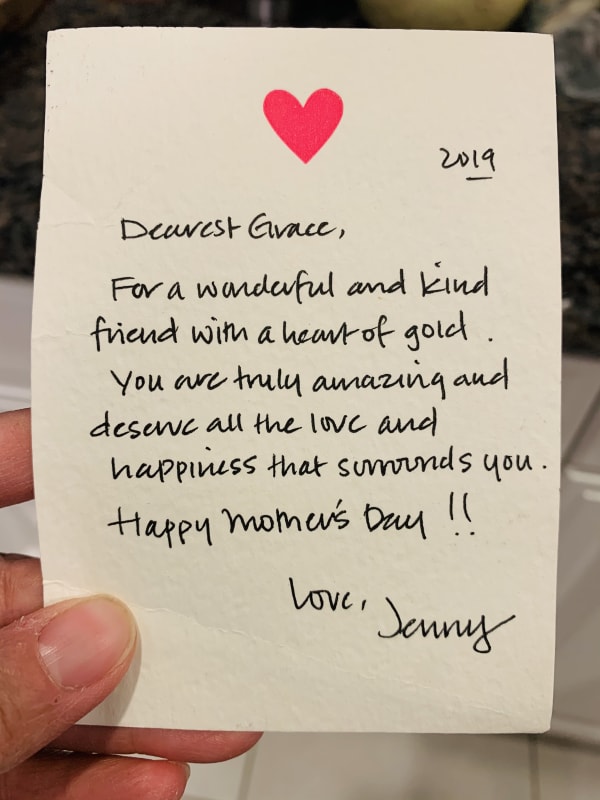 2019
Dearest Grace,
For a wonderful and kind
friend with a heart of gold.
You are truly amazing and
deserve all the love and
happiness that surrounds you.
Happy Mother's Day!!
Love,
Jenny